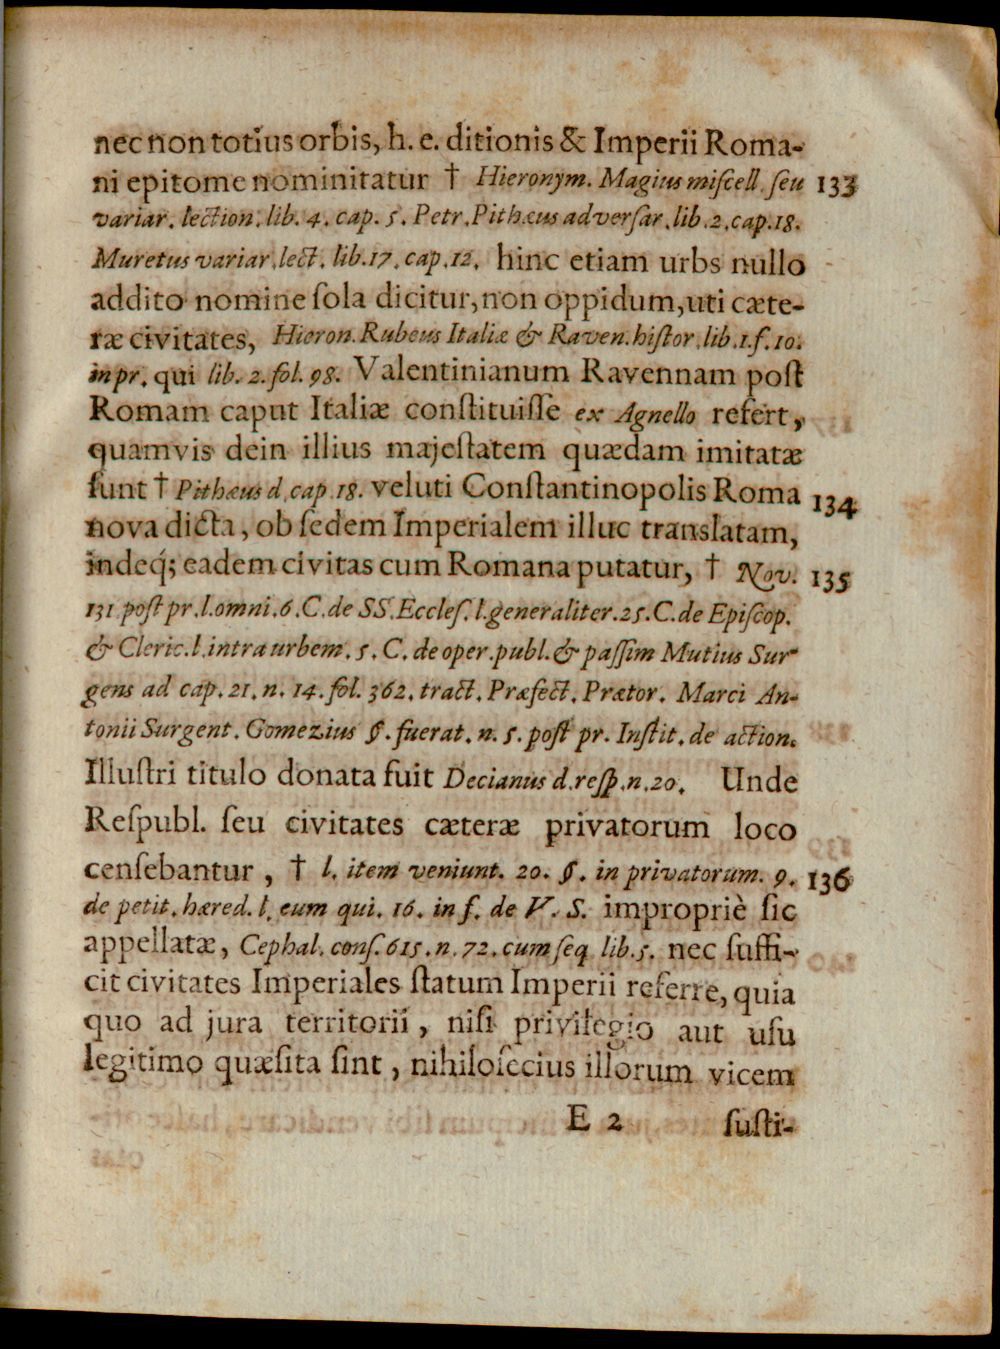 nec non totius orbis, h. e. ditionis & Imperii Roma-
ni epitome nominitatur † Hieronym. Magius miſcell. ſeu 133
variar. lection. lib. 4. cap. 5. Petr. Pithæus adverſar. lib. 2. cap. 18.
Muretus variar. lect. lib. 17. cap. 12. hinc etiam urbs nullo
addito nomine ſola dicitur, non oppidum, uti cæte-
ræ civitates, Hieron. Rubeus Italiæ & Raven. hiſtor. lib. 1. f. 10.
in pr. qui lib. 2. fol. 98. Valentinianum Ravennam poſt
Romam caput Italiæ conſtituiſſe ex Agnello refert,
quamvis dein illius majeſtatem quædam imitatæ
ſunt † Pithæus d. cap. 18. veluti Conſtantinopolis Roma 134
nova dicta, ob ſedem Imperialem illuc translatam,
indeq́; eadem civitas cum Romana putatur, † Nov. 135
131 poſt pr. l. omni. 6. C. de SS. Eccleſ. l. generaliter. 25. C. de Epiſcop.
& Cleric. l. intra urbem. 5. C. de oper. publ. & paſſim Mutius Sur-
gens ad cap. 21. n. 14. fol. 362. tract. Præfect. Prætor. Marci An-
tonii Surgent. Gomezius §. fuerat. n. 5. poſt pr. Inſtit. de action.
Illuſtri titulo donata fuit Decianus d. reſp. n. 20. Unde
Reſpubl. ſeu civitates cæteræ privatorum loco
cenſebantur, † l. item veniunt. 20. §. in privatorum. 9. 136
de petit. hæred. l. eum qui. 16. in f. de V. S. impropriè ſic
appellatæ, Cephal. conſ. 615. n. 72. cum ſeq. lib. 5. nec ſuffi-
cit civitates Imperiales ſtatum Imperii referre, quia
quo ad jura territorii, niſi privilegio aut uſu
legitimo quæſita ſint, nihiloſecius illorum vicem
E 2 ſuſti-